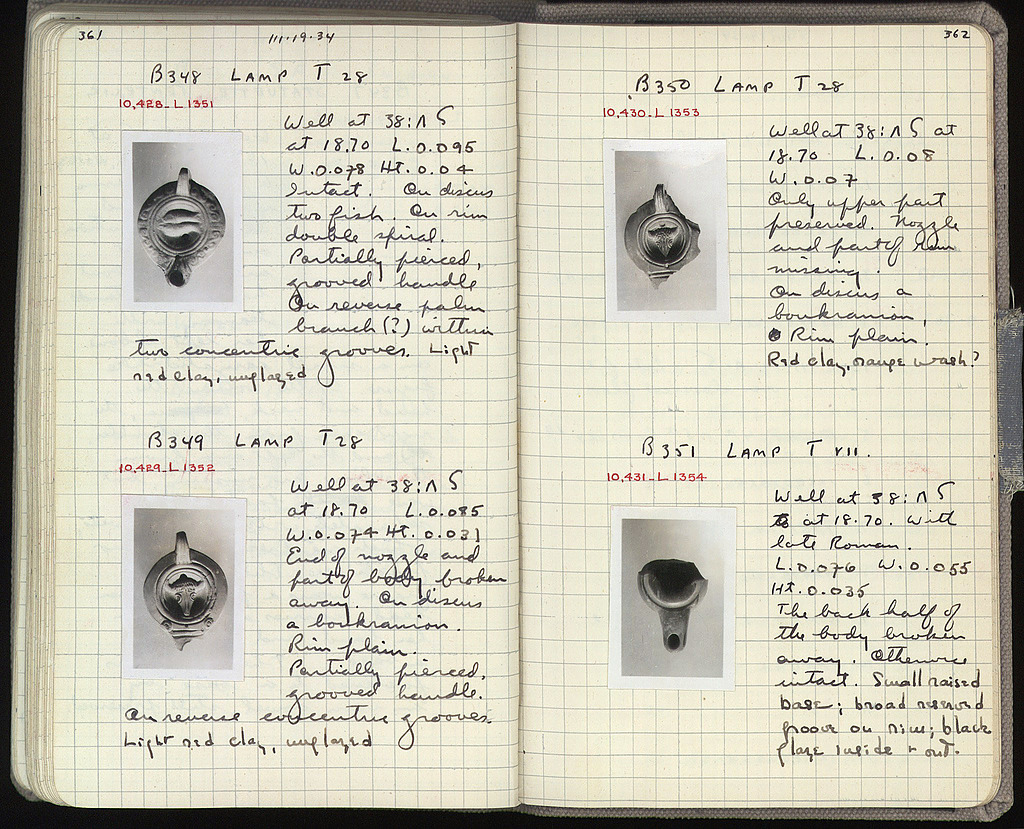 361
111·19·34
B348 LAMP T 28
10,428_L 1351
Well at 38:Λ S
at 18.70 L.0.095
W.0.078 Ht.0.04
Intact. On discus
two fish. On rim
double spiral.
Partially pierced,
grooved handle
On reverse palm
branch(?) within
two concentric grooves. Light
red clay, unglazed
B349 LAMP T28
10,429_L 1352
Well at 38:Λ S
at 18.70 L.0.085
W.0.074 Ht.0.031
End of nozzle and
part of body broken
away. On discus
a boukranion.
Rim plain.
Partially pierced,
grooved handle.
On reverse concentric grooves.
Light red clay, unglazed
362
B350 LAMP T 28
10,430_L 1353
Well at 38:Λ S at
18.70 L.0.08
W.0.07
Only upper part
preserved. Nozzle
and part of rim
missing.
On discus a
boukranion,
Rim plain.
Red clay, orange wash?
B351 LAMP T VII.
10,431_L 1354
Well at 38:Λ S
at 18.70. With
late Roman.
L.0.076 W.0.055
Ht.0.035
The back half of
the body broken
away. Otherwise
intact. Small raised
base; broad reserved
groove on rim; black
glaze inside + out.